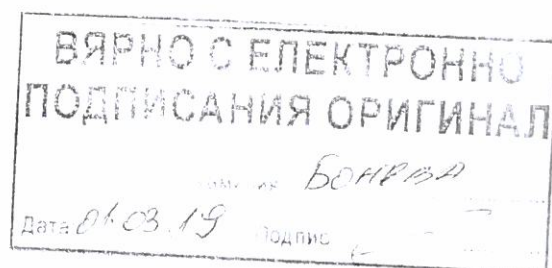 ВЯРНО С ЕЛЕКТРОННО
ПОДПИСАНИЯ ОРИГИНАЛ
БОНЕВА
Дата 01.03.19 Подпис